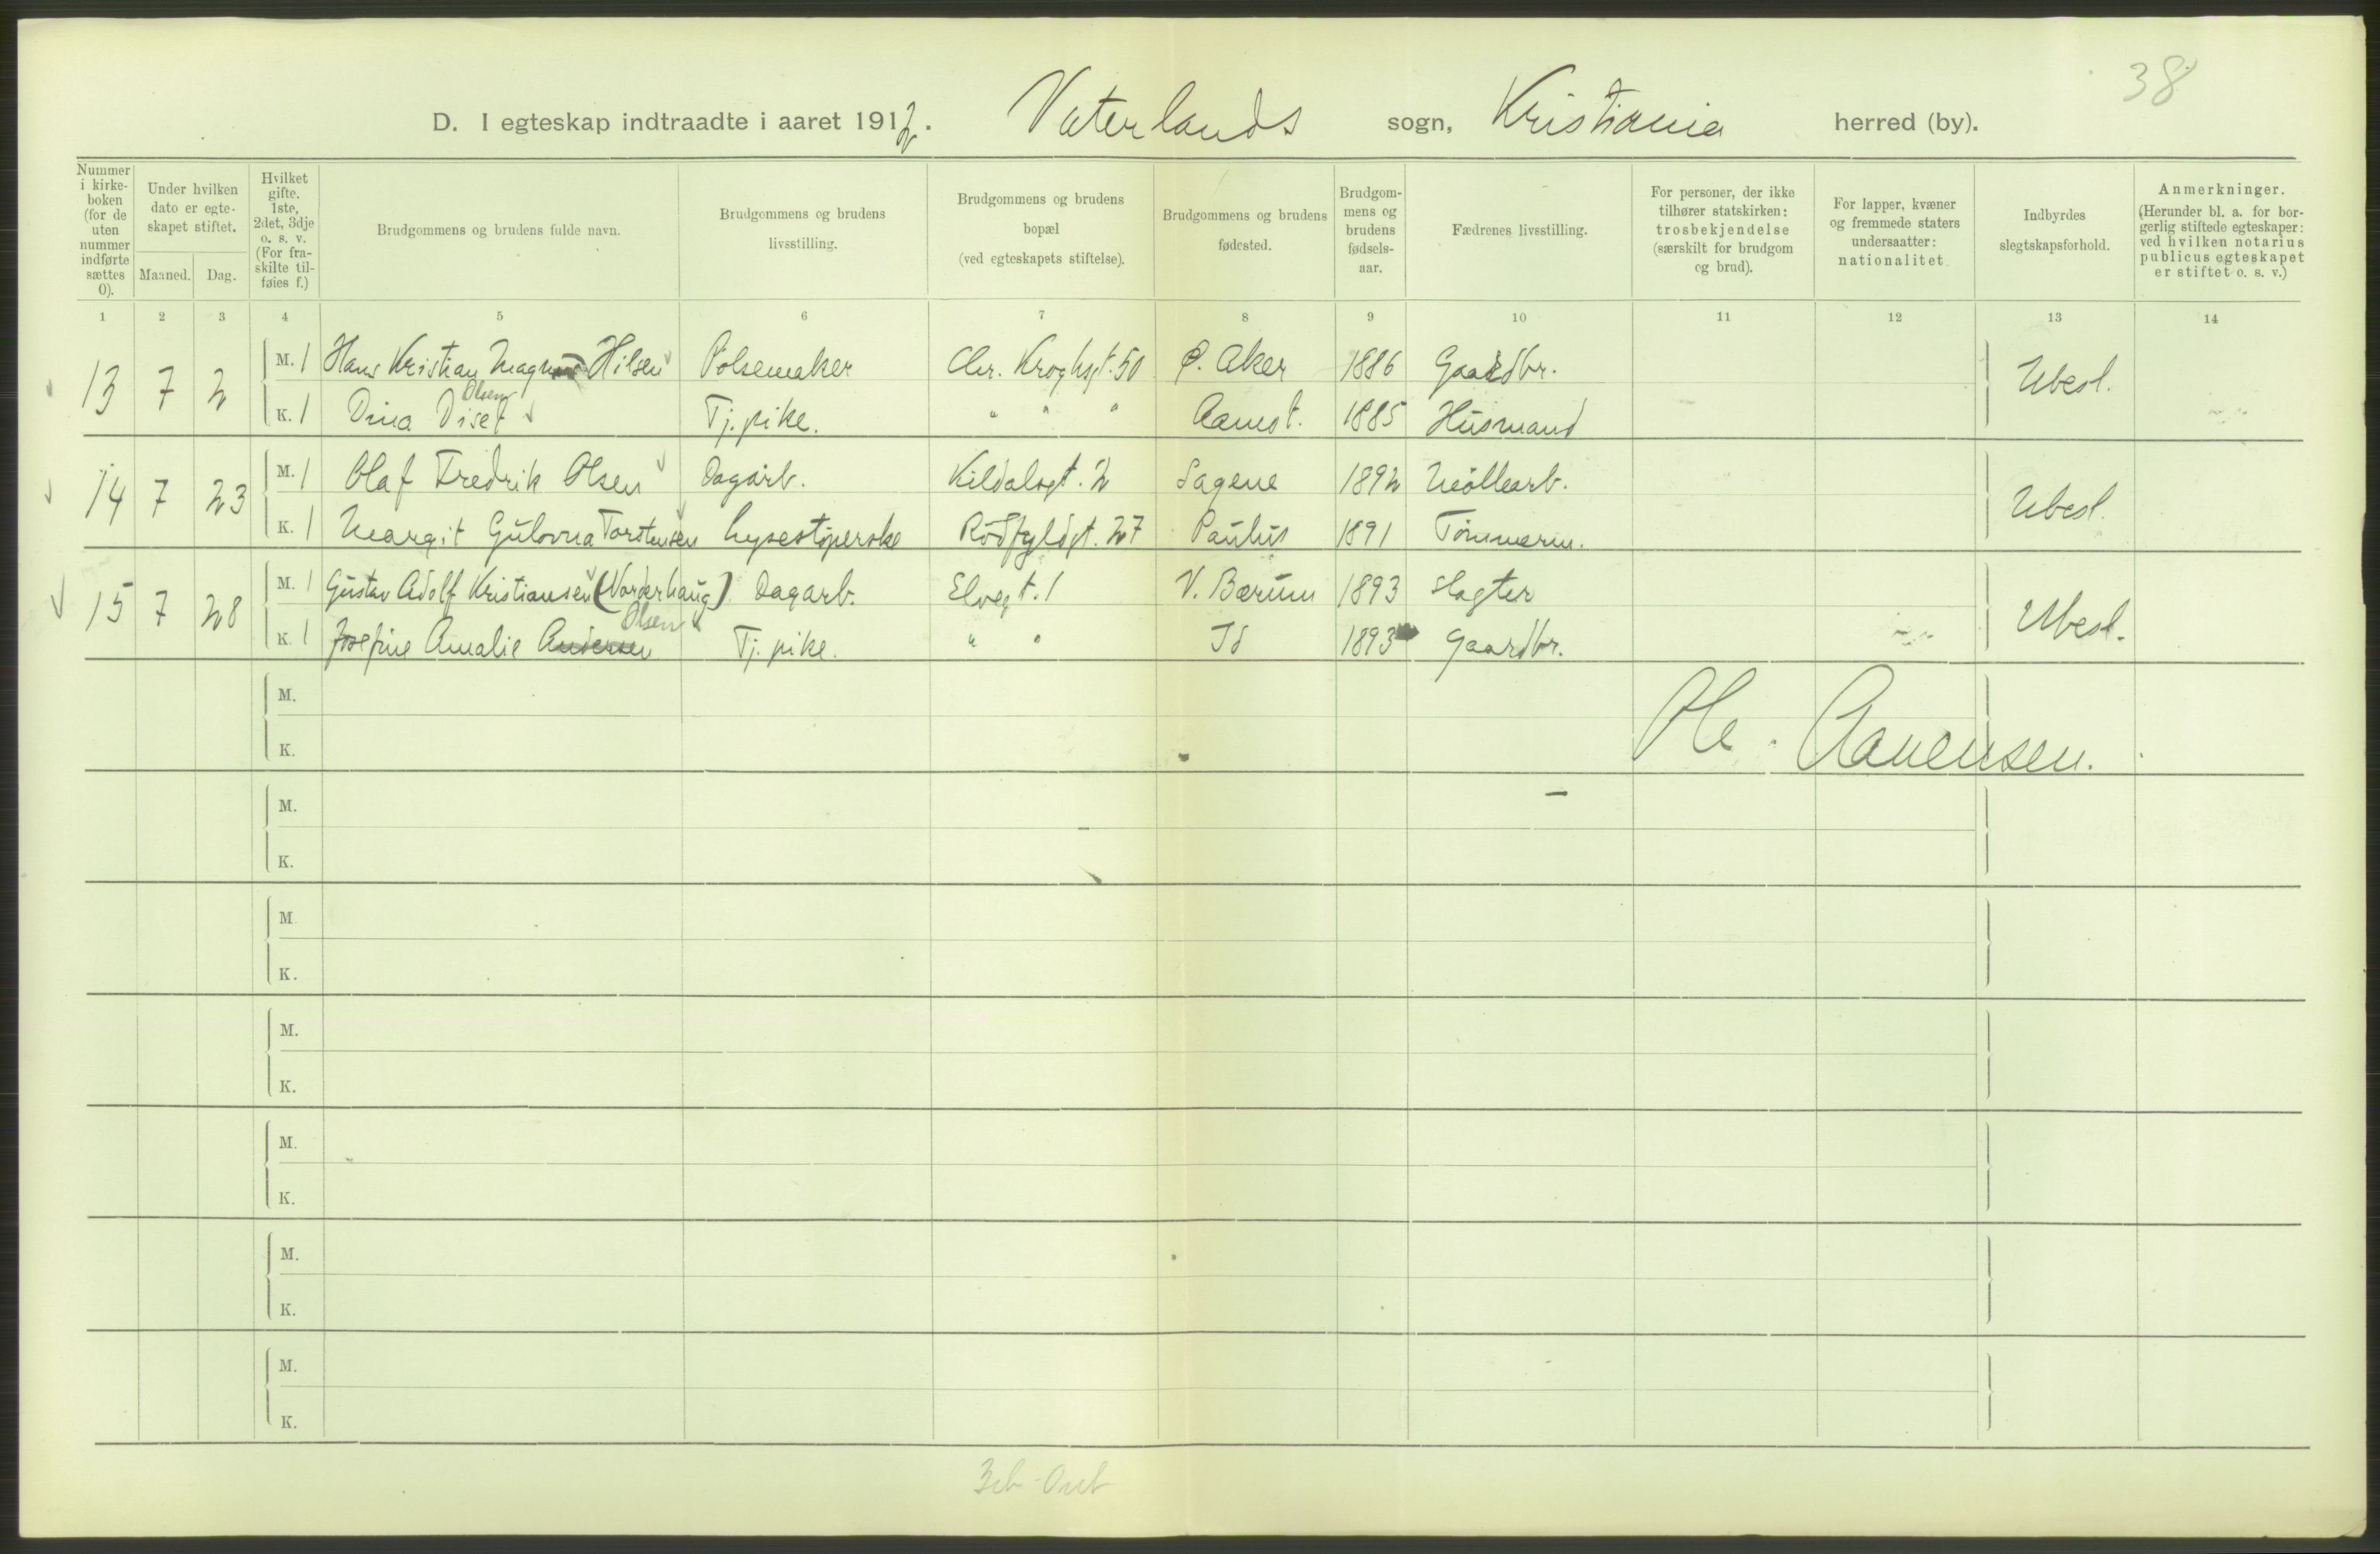 38
D. I egteskap indtraadte i aaret 1912. Vaterlands sogn, Kristiania herred (by).
Nummer i kirke- boken (for de uten nummer indførte sættes 0).
Under hvilken dato er egte- skapet stiftet.
Maaned. Dag.
Hvilket gifte. 1ste, 2det, 3dje o. s. v. (For fra- skilte til- føies f.)
Brudgommens og brudens fulde navn.
Brudgommens og brudens livsstilling.
Brudgommens og brudens bopæl (ved egteskapets stiftelse).
Brudgommens og brudens fødested.
Brudgom- mens og brudens fødsels- aar.
Fædrenes livsstilling.
For personer, der ikke tilhører statskirken: trosbekjendelse (særskilt for brudgom og brud).
For lapper, kvæner og fremmede staters undersaatter: nationalitet.
Indbyrdes slegtskapsforhold.
Anmerkninger. (Herunder bl. a. for bor- gerlig stiftede egteskaper: ved hvilken notarius publicus egteskapet er stiftet o. s. v.)
1 2 3 4 5 6 7 8 9 10 11 12 13 14
13 7 2 M. 1 Hans Kristian Magnus Hilsen Polsemaker Chr. Kroghsgt. 50 Ø. Aker 1886 Gaardbr. Ubesl.
Olsen
K. 1 Dina Diset Tj. pike. " " " Aamot. 1885 Husmand
14 7 23 M. 1 Olaf Fredrik Olsen Dagarb. Kildalsgt. 2 Sagene 1892 Möllearb. Ubesl.
K. 1 Margit Gulovna Torstensen Lysestøperske Rödfyldgt. 27 Paulus 1891 Tömmerm.
15 7 28 M. 1 Gustav Adolf Kristiansen (Norderhaug) Dagarb. Elvegt. 1 V. Bærum 1893 Slagter Ubesl.
Olsen
K. 1 Josefine Amalie Andersen Tj. pike. " " Id 1893 Gaardbr.
M.
K.
M.
K.
M.
K.
M.
K.
M.
K.
M.
K.
M.
K.